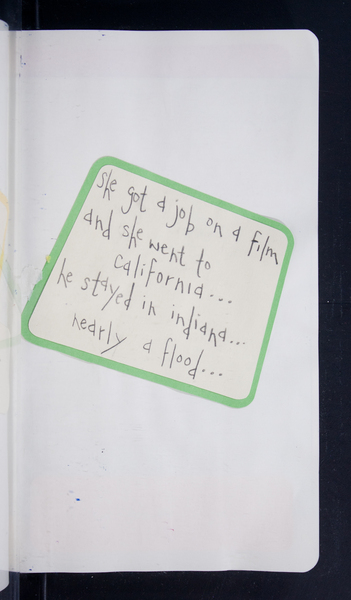 she got a job on a film
and she went to
california...
he stayed in indiana...
nearly a flood...